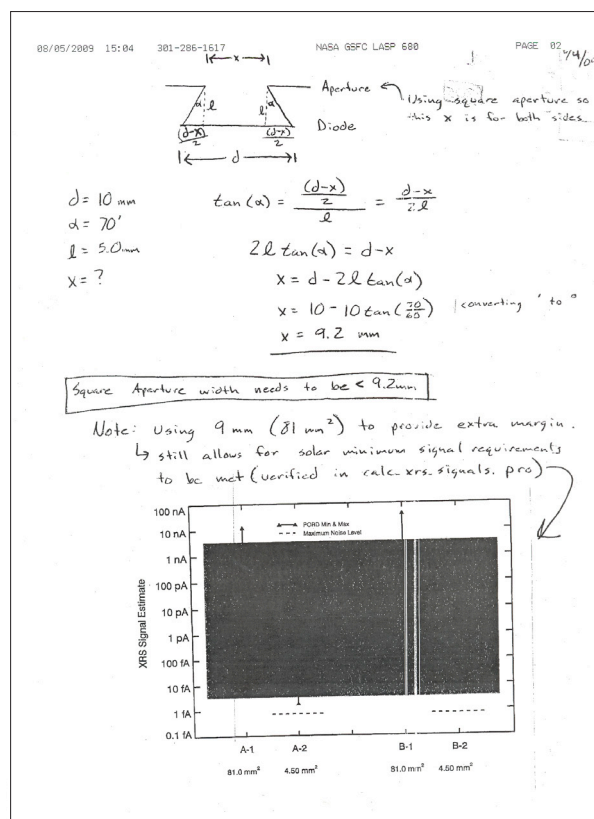 08/05/2009 15:04 301-286-1617 NASA GSFC LASP 680 PAGE 02
x
Aperture
Using square aperture so
this x is for both sides
α l l α
(d-x)/2 (d-x)/2 Diode
d
d = 10 mm
α = 70'
l = 5.0 mm
x = ?
tan(α) = ((d-x)/2)/l = (d-x)/2l
2l tan(α) = d-x
x = d - 2l tan(α)
x = 10 - 10 tan(70/60) | converting ' to °
x = 9.2 mm
Square Aperture width needs to be < 9.2mm
Note: Using 9 mm (81 mm²) to provide extra margin.
↳ still allows for solar minimum signal requirements
to be met (verified in calc_xrs_signals.pro)
XRS Signal Estimate
100 nA
10 nA
1 nA
100 pA
10 pA
1 pA
100 fA
10 fA
1 fA
0.1 fA
PORD Min & Max
Maximum Noise Level
A-1 A-2 B-1 B-2
81.0 mm² 4.50 mm² 81.0 mm² 4.50 mm²